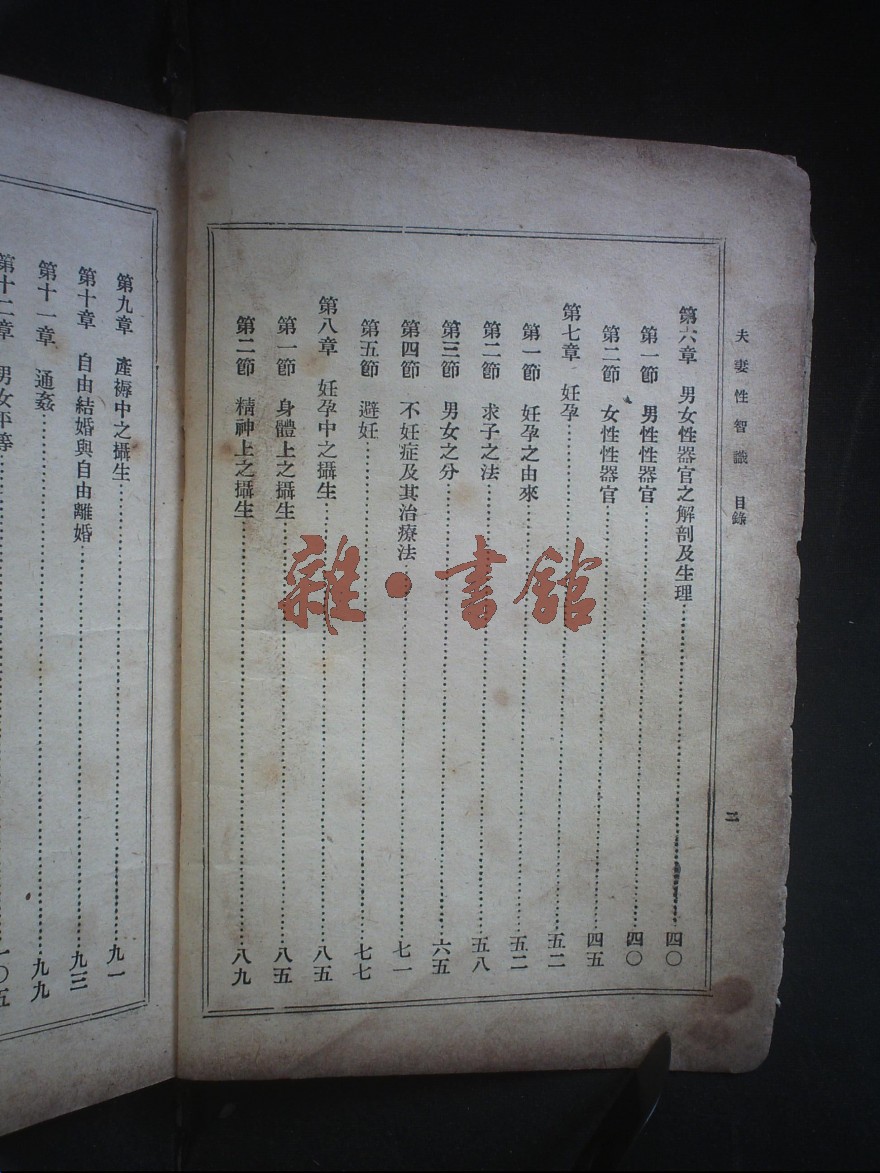 夫妻性智識 目錄
二
第六章 男女性器官之解剖及生理……四〇
第一節 男性性器官……四〇
第二節 女性性器官……四五
第七章 妊孕……五二
第一節 妊孕之由來……五二
第二節 求子之法……五八
第三節 男女之分……六五
第四節 不妊症及其治療法……七一
第五節 避妊……七七
第八章 妊孕中之攝生……八五
第一節 身體上之攝生……八五
第二節 精神上之攝生……八九
第九章 產褥中之攝生……九一
第十章 自由結婚與自由離婚……九三
第十一章 通姦……九九
第十二章 男女平等……一〇五
雜·書館